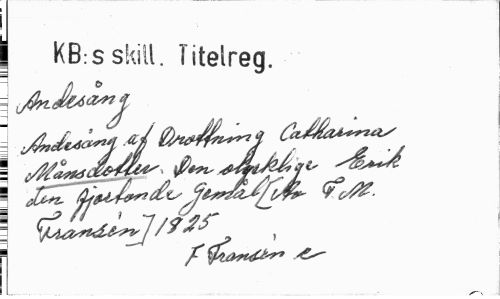 KB:s skill. Titelreg.
Andesång
Andesång af Drottning Catharina
Månsdotter. Den olycklige Erik
den fjortonde Gemål [Av F.M.
Fransén] 1825
F Fransén e